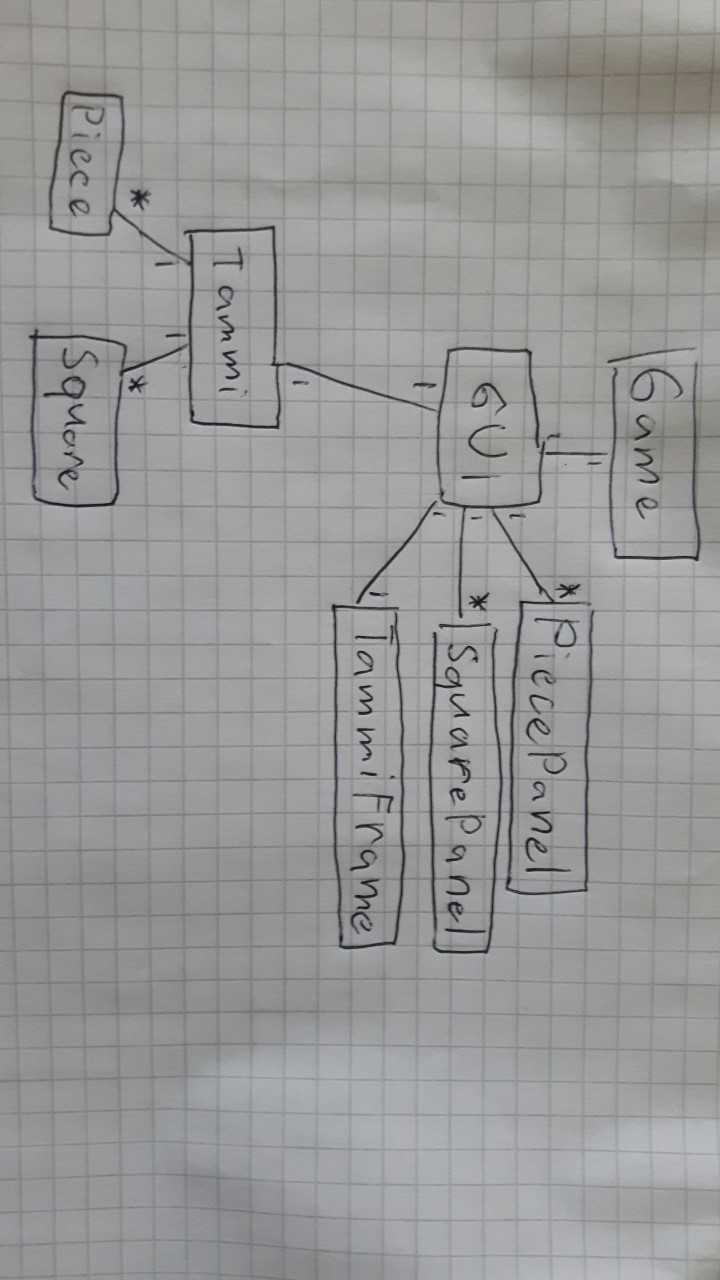 Game
1
1
* PiecePanel
GUI 1
1 * SquarePanel
1
1 1 TammiFrame
1
Tammi
1 1
* *
Piece Square